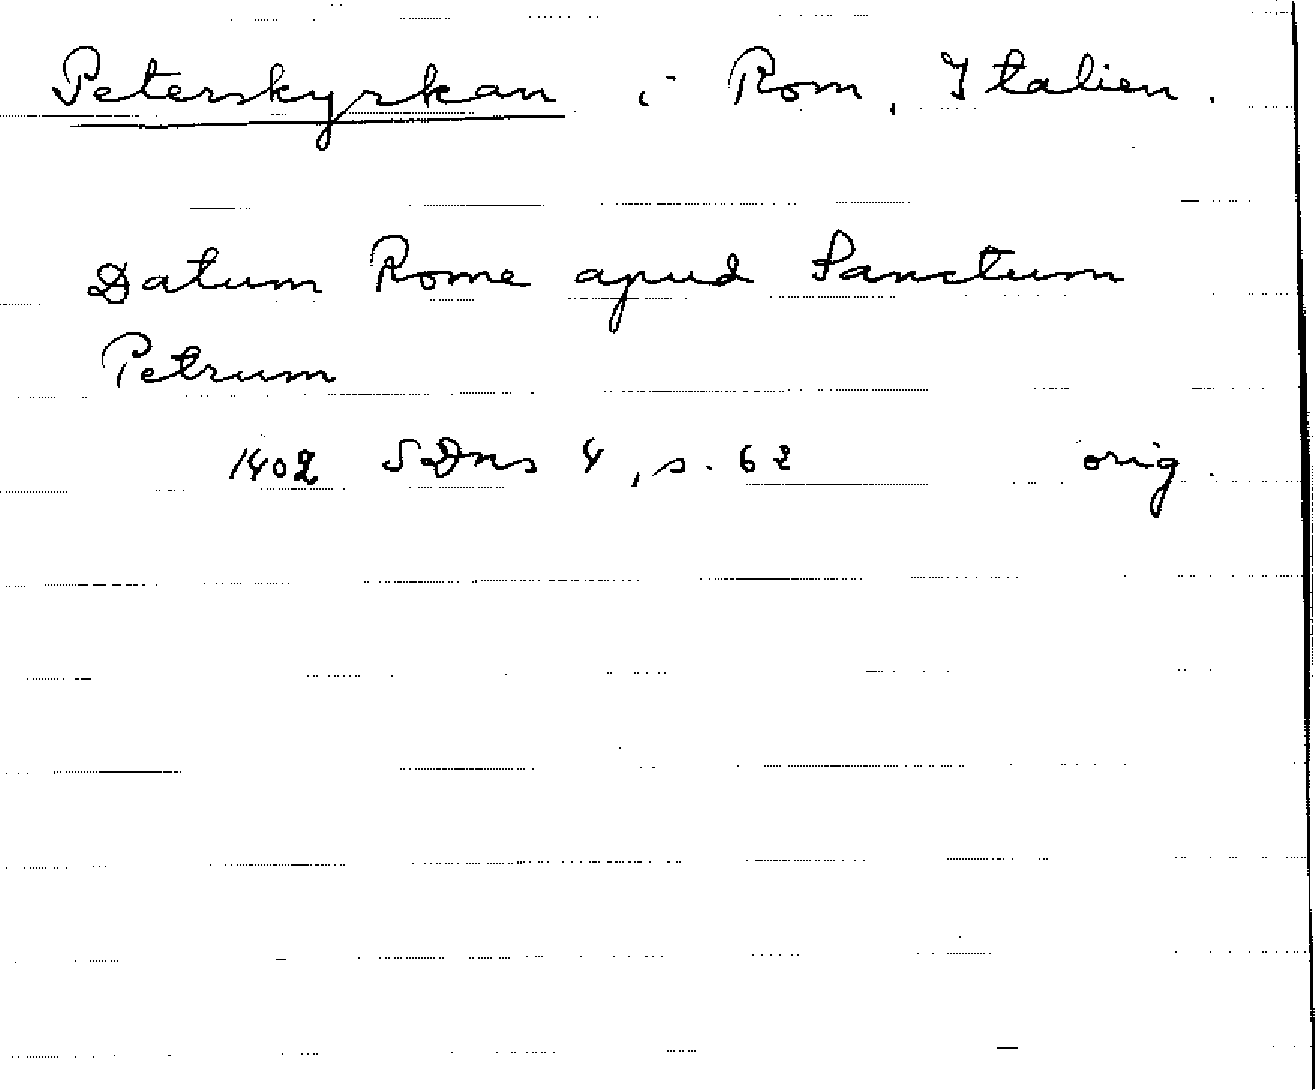 Peterskyrkan i Rom, Italien.
Datum Rome apud Sanctum
Petrum
1402 SDns 4, s. 62 orig.